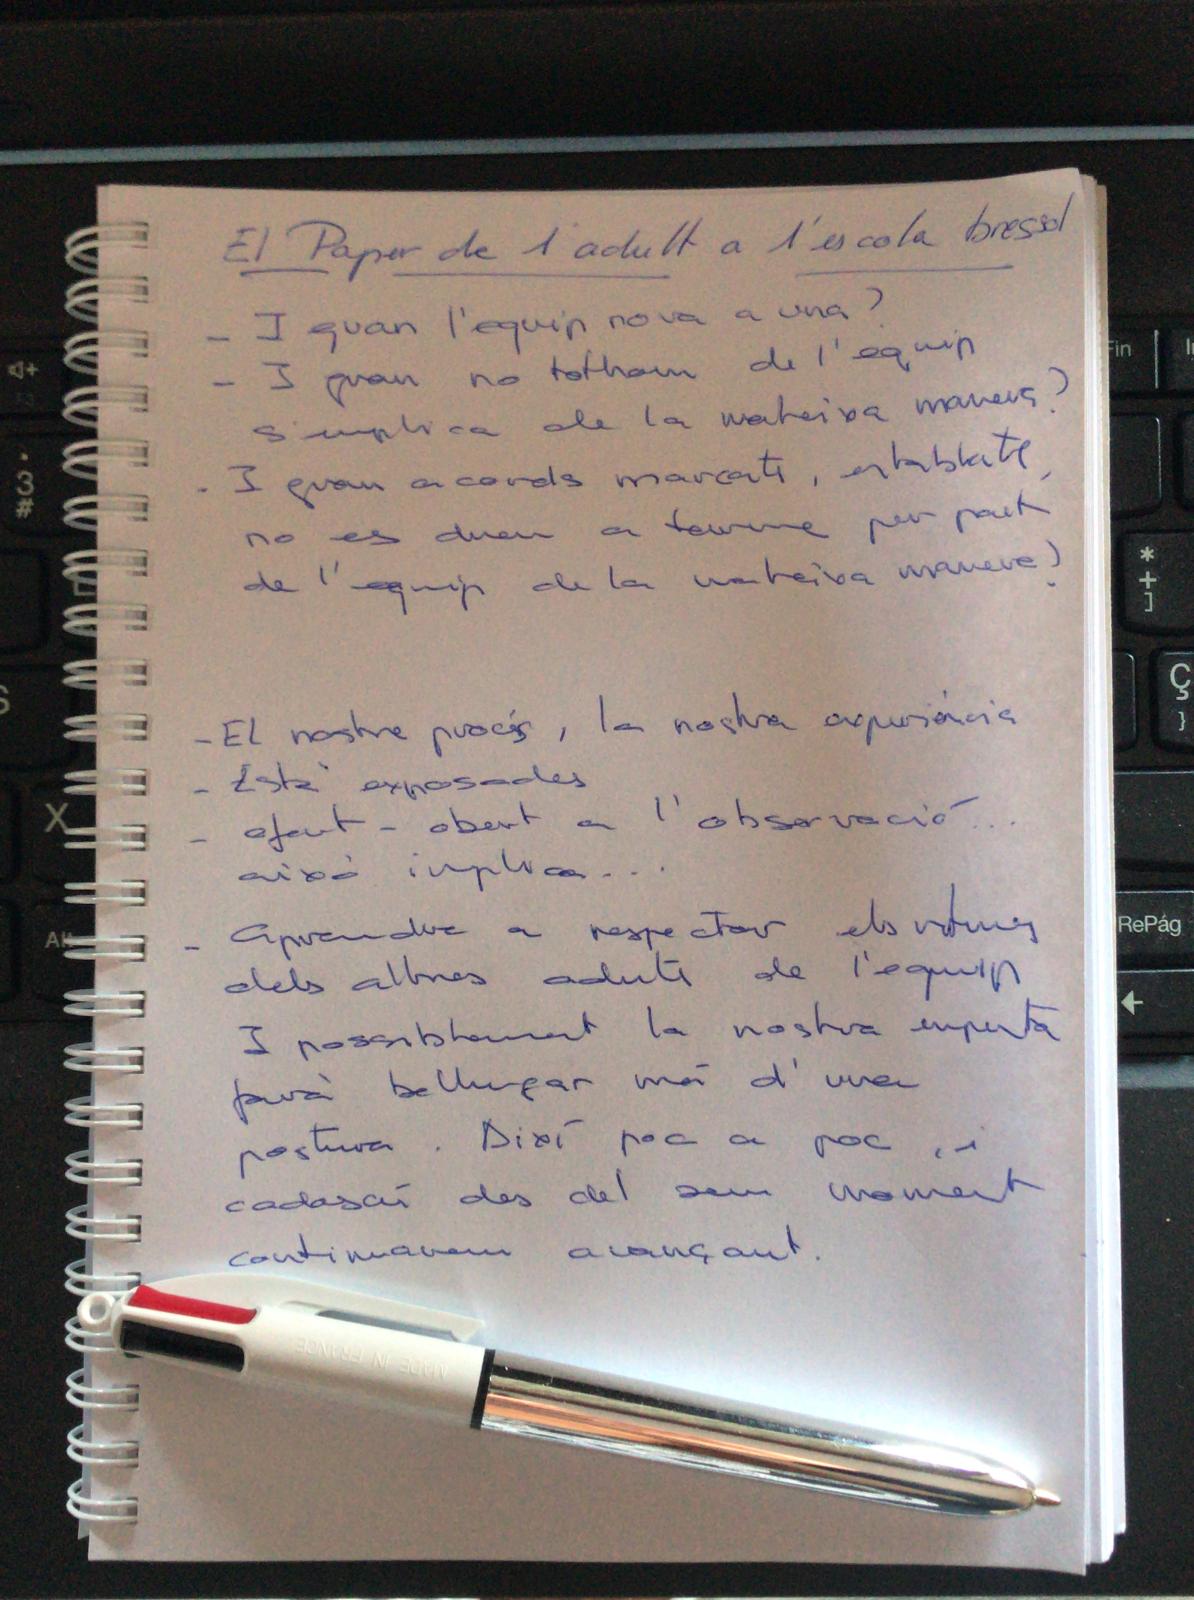 El Paper de l'adult a l'escola bressol
- I quan l'equip no va a una?
- I quan no tothom de l'equip
s'implica de la mateixa manera?
- I quan acords marcats, establerts,
no es duen a terme per part
de l'equip de la mateixa manera?
- El nostre procés, la nostra experiència
- Està exposades
- obert a l'observació...
això implica...
- Aprendre a respectar els ritmes
dels altres adults de l'equip
I possiblement la nostra empenta
farà bellugar més d'una
postura. Així poc a poc, i
cadascú des del seu moment
continuarem avançant.
MADE IN FRANCE
Fin
3
#
*
+
]
Ç
}
S
X
Alt
RePág